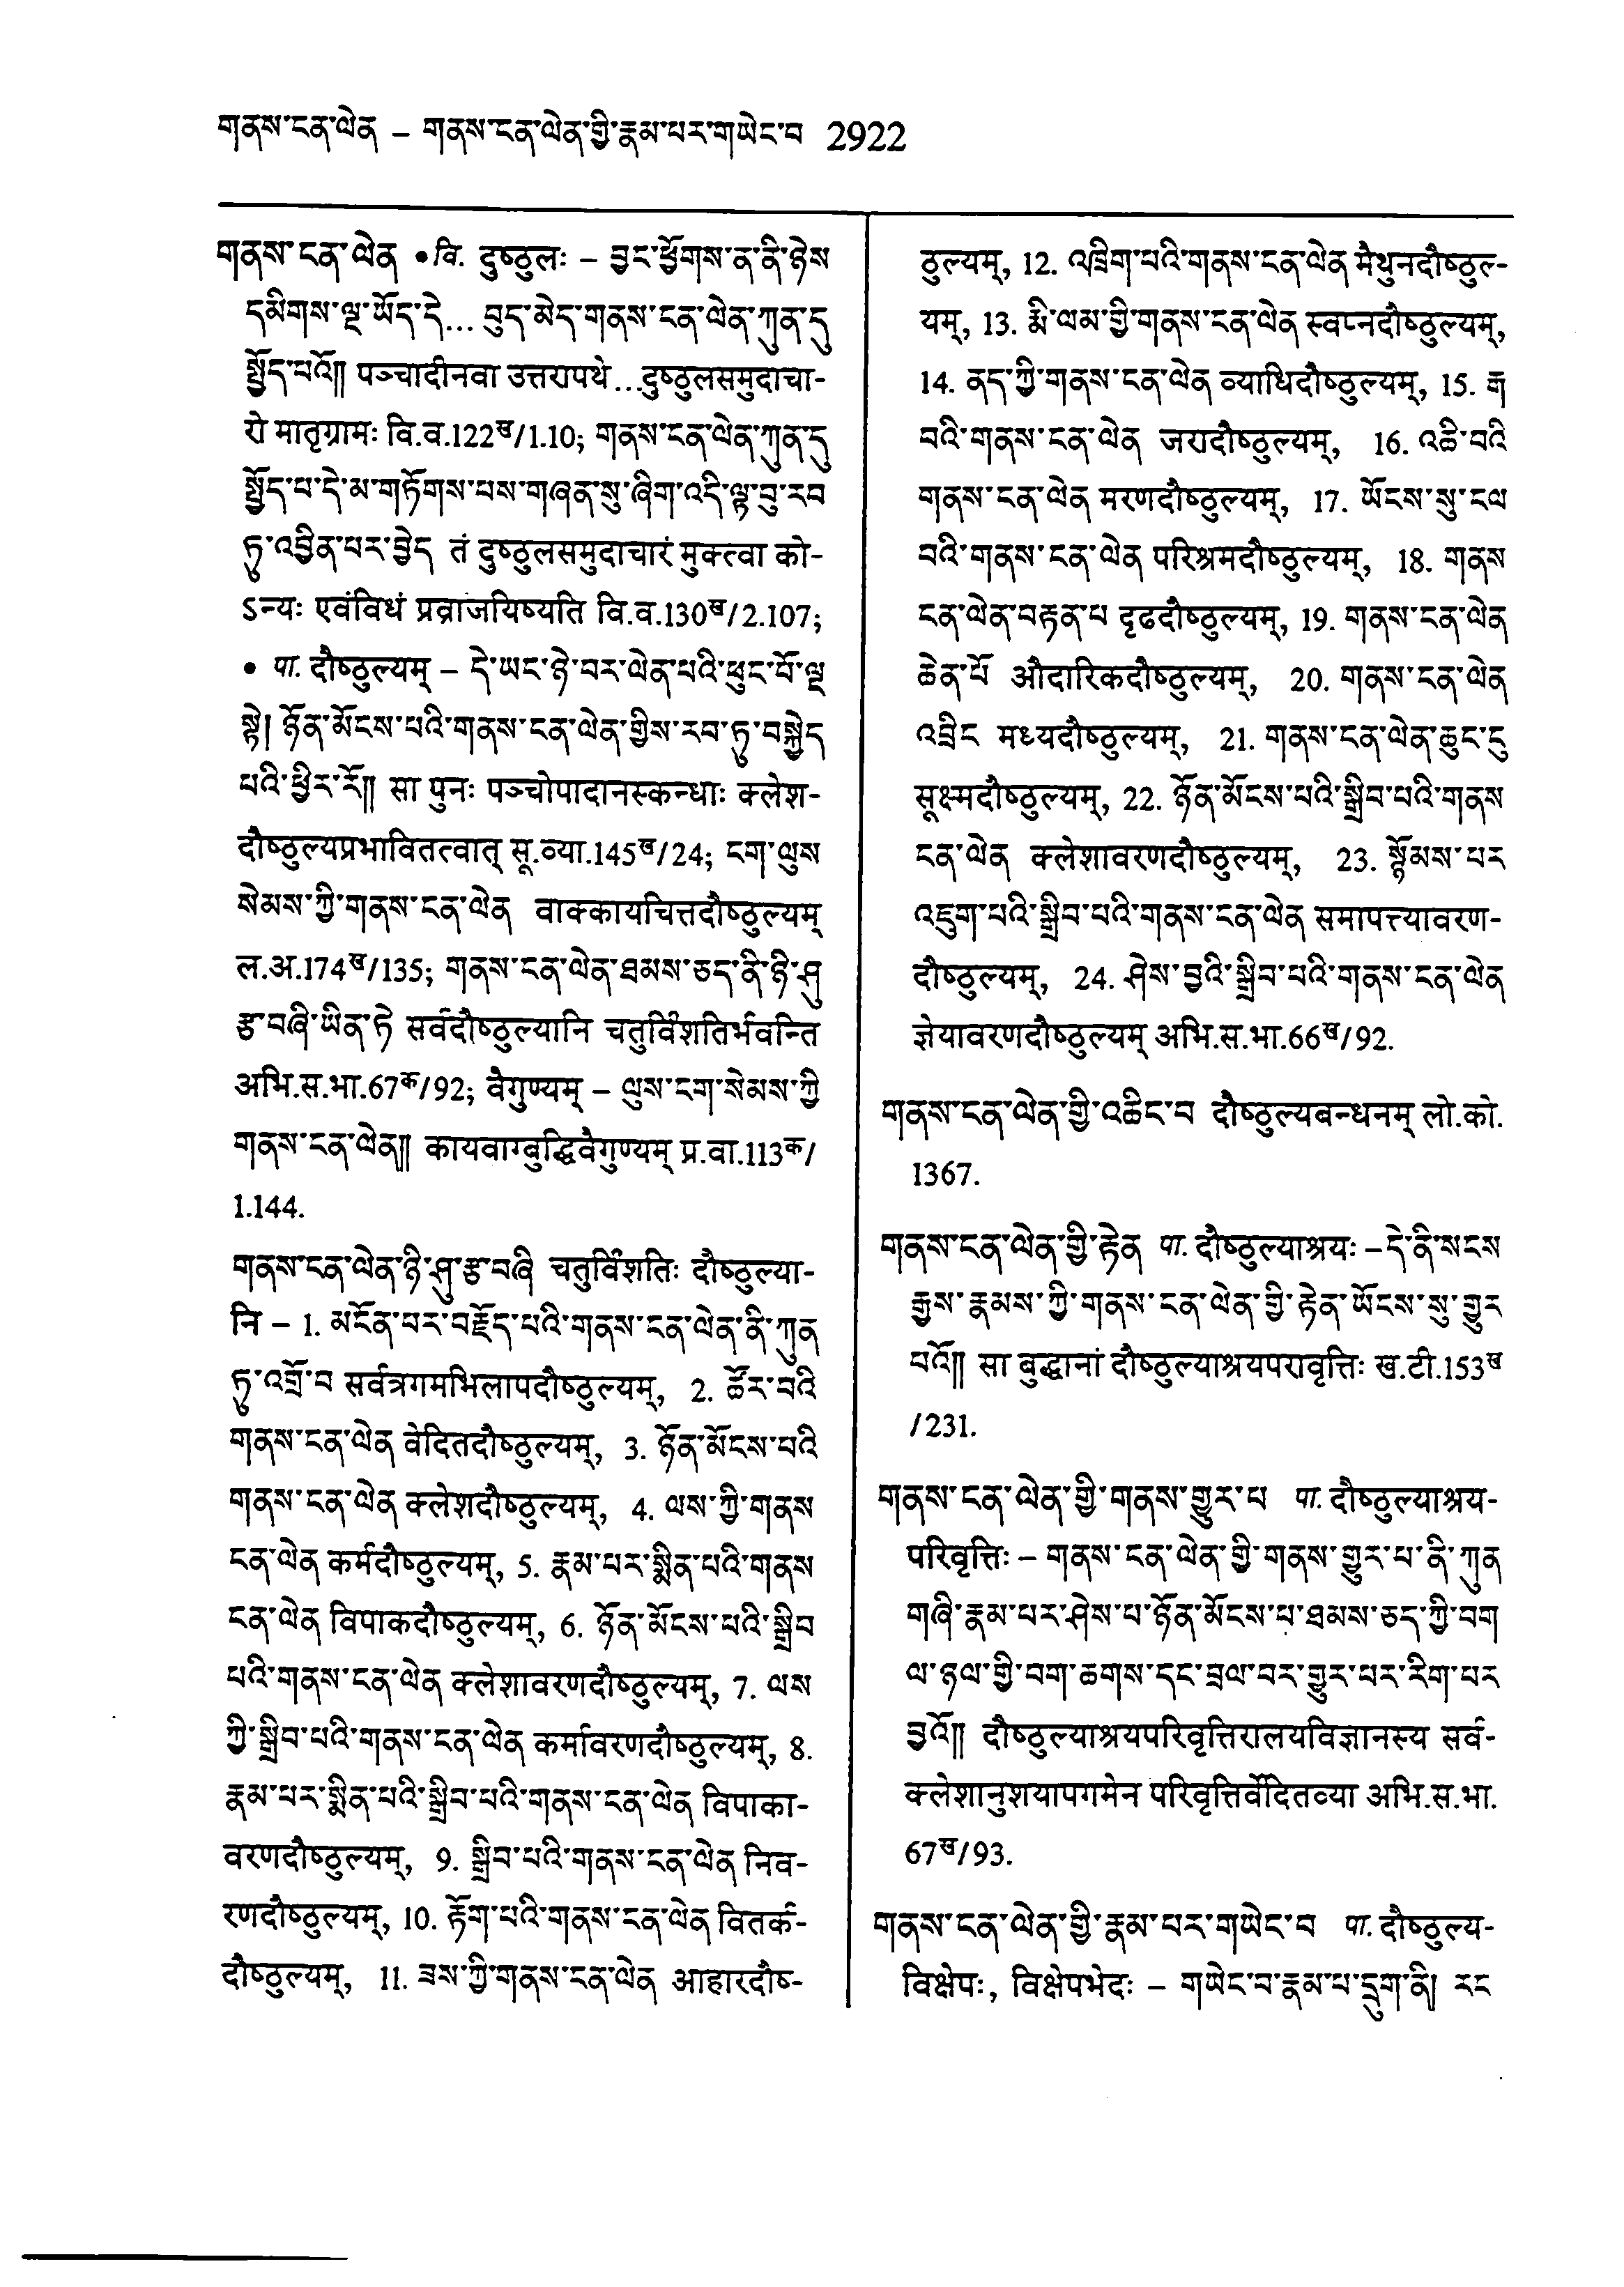 གནས་ངན་ལེན – གནས་ངན་ལེན་གྱི་རྣམ་པར་གཡེང་བ 2922
གནས་ངན་ལེན •वि. दुष्ठुलः – བྱང་ཕྱོགས་ན་ནི་ཉེས
དམིགས་ལྔ་ཡོད་དེ... བུད་མེད་གནས་ངན་ལེན་ཀུན་ཏུ
སྤྱོད་པའོ།། पञ्चादीनवा उत्तरापथे...दुष्ठुलसमुदाचा-
रो मातृग्रामः वि.व.122ख/1.10; གནས་ངན་ལེན་ཀུན་ཏུ
སྤྱོད་པ་དེ་མ་གཏོགས་པས་གཞན་སུ་ཞིག་འདི་ལྟ་བུ་རབ
ཏུ་འབྱིན་པར་བྱེད तं दुष्ठुलसमुदाचारं मुक्त्वा को-
ऽन्यः एवंविधं प्रव्राजयिष्यति वि.व.130ख/2.107;
• पा. दौष्ठुल्यम् – དེ་ཡང་ཉེ་བར་ལེན་པའི་ཕུང་པོ་ལྔ
སྟེ། ཉོན་མོངས་པའི་གནས་ངན་ལེན་གྱིས་རབ་ཏུ་བསྐྱེད
པའི་ཕྱིར་རོ།། सा पुनः पञ्चोपादानस्कन्धाः क्लेश-
दौष्ठुल्यप्रभावितत्वात् सू.व्या.145ख/24; ངག་ལུས
སེམས་ཀྱི་གནས་ངན་ལེན वाक्कायचित्तदौष्ठुल्यम्
ल.अ.174ख/135; གནས་ངན་ལེན་ཐམས་ཅད་ནི་ཉི་ཤུ
རྩ་བཞི་ཡིན་ཏེ सर्वदौष्ठुल्यानि चतुर्विंशतिर्भवन्ति
अभि.स.भा.67क/92; वैगुण्यम् – ལུས་ངག་སེམས་ཀྱི
གནས་ངན་ལེན།། कायवाग्बुद्धिवैगुण्यम् प्र.वा.113क/
1.144.
གནས་ངན་ལེན་ཉི་ཤུ་རྩ་བཞི चतुर्विंशतिः दौष्ठुल्या-
नि – 1. མངོན་པར་བརྗོད་པའི་གནས་ངན་ལེན་ནི་ཀུན
ཏུ་འགྲོ་བ सर्वत्रगमभिलापदौष्ठुल्यम्, 2. ཚོར་བའི
གནས་ངན་ལེན वेदितदौष्ठुल्यम्, 3. ཉོན་མོངས་པའི
གནས་ངན་ལེན क्लेशदौष्ठुल्यम्, 4. ལས་ཀྱི་གནས
ངན་ལེན कर्मदौष्ठुल्यम्, 5. རྣམ་པར་སྨིན་པའི་གནས
ངན་ལེན विपाकदौष्ठुल्यम्, 6. ཉོན་མོངས་པའི་སྒྲིབ
པའི་གནས་ངན་ལེན क्लेशावरणदौष्ठुल्यम्, 7. ལས
ཀྱི་སྒྲིབ་པའི་གནས་ངན་ལེན कर्मावरणदौष्ठुल्यम्, 8.
རྣམ་པར་སྨིན་པའི་སྒྲིབ་པའི་གནས་ངན་ལེན विपाका-
वरणदौष्ठुल्यम्, 9. སྒྲིབ་པའི་གནས་ངན་ལེན निव-
रणदौष्ठुल्यम्, 10. རྟོག་པའི་གནས་ངན་ལེན वितर्क-
दौष्ठुल्यम्, 11. ཟས་ཀྱི་གནས་ངན་ལེན आहारदौष्-
ठुल्यम्, 12. འཁྲིག་པའི་གནས་ངན་ལེན मैथुनदौष्ठुल्-
यम्, 13. རྨི་ལམ་གྱི་གནས་ངན་ལེན स्वप्नदौष्ठुल्यम्,
14. ནད་ཀྱི་གནས་ངན་ལེན व्याधिदौष्ठुल्यम्, 15. རྒ
བའི་གནས་ངན་ལེན जरादौष्ठुल्यम्, 16. འཆི་བའི
གནས་ངན་ལེན मरणदौष्ठुल्यम्, 17. ཡོངས་སུ་ངལ
བའི་གནས་ངན་ལེན परिश्रमदौष्ठुल्यम्, 18. གནས
ངན་ལེན་བརྟན་པ दृढदौष्ठुल्यम्, 19. གནས་ངན་ལེན
ཆེན་པོ औदारिकदौष्ठुल्यम्, 20. གནས་ངན་ལེན
འབྲིང मध्यदौष्ठुल्यम्, 21. གནས་ངན་ལེན་ཆུང་ངུ
सूक्ष्मदौष्ठुल्यम्, 22. ཉོན་མོངས་པའི་སྒྲིབ་པའི་གནས
ངན་ལེན क्लेशावरणदौष्ठुल्यम्, 23. སྙོམས་པར
འཇུག་པའི་སྒྲིབ་པའི་གནས་ངན་ལེན समापत्त्यावरण-
दौष्ठुल्यम्, 24. ཤེས་བྱའི་སྒྲིབ་པའི་གནས་ངན་ལེན
ज्ञेयावरणदौष्ठुल्यम् अभि.स.भा.66ख/92.
གནས་ངན་ལེན་གྱི་འཆིང་བ दौष्ठुल्यबन्धनम् लो.को.
1367.
གནས་ངན་ལེན་གྱི་རྟེན पा. दौष्ठुल्याश्रयः – དེ་ནི་སངས
རྒྱས་རྣམས་ཀྱི་གནས་ངན་ལེན་གྱི་རྟེན་ཡོངས་སུ་གྱུར
པའོ།། सा बुद्धानां दौष्ठुल्याश्रयपरावृत्तिः ख.टी.153ख
/231.
གནས་ངན་ལེན་གྱི་གནས་གྱུར་པ पा. दौष्ठुल्याश्रय-
परिवृत्तिः – གནས་ངན་ལེན་གྱི་གནས་གྱུར་པ་ནི་ཀུན
གཞི་རྣམ་པར་ཤེས་པ་ཉོན་མོངས་པ་ཐམས་ཅད་ཀྱི་བག
ལ་ཉལ་གྱི་བག་ཆགས་དང་བྲལ་བར་གྱུར་པར་རིག་པར
བྱའོ།། दौष्ठुल्याश्रयपरिवृत्तिरालयविज्ञानस्य सर्व-
क्लेशानुशयापगमेन परिवृत्तिर्वेदितव्या अभि.स.भा.
67ख/93.
གནས་ངན་ལེན་གྱི་རྣམ་པར་གཡེང་བ पा. दौष्ठुल्य-
विक्षेपः, विक्षेपभेदः – གཡེང་བ་རྣམ་པ་དྲུག་ནི། རང